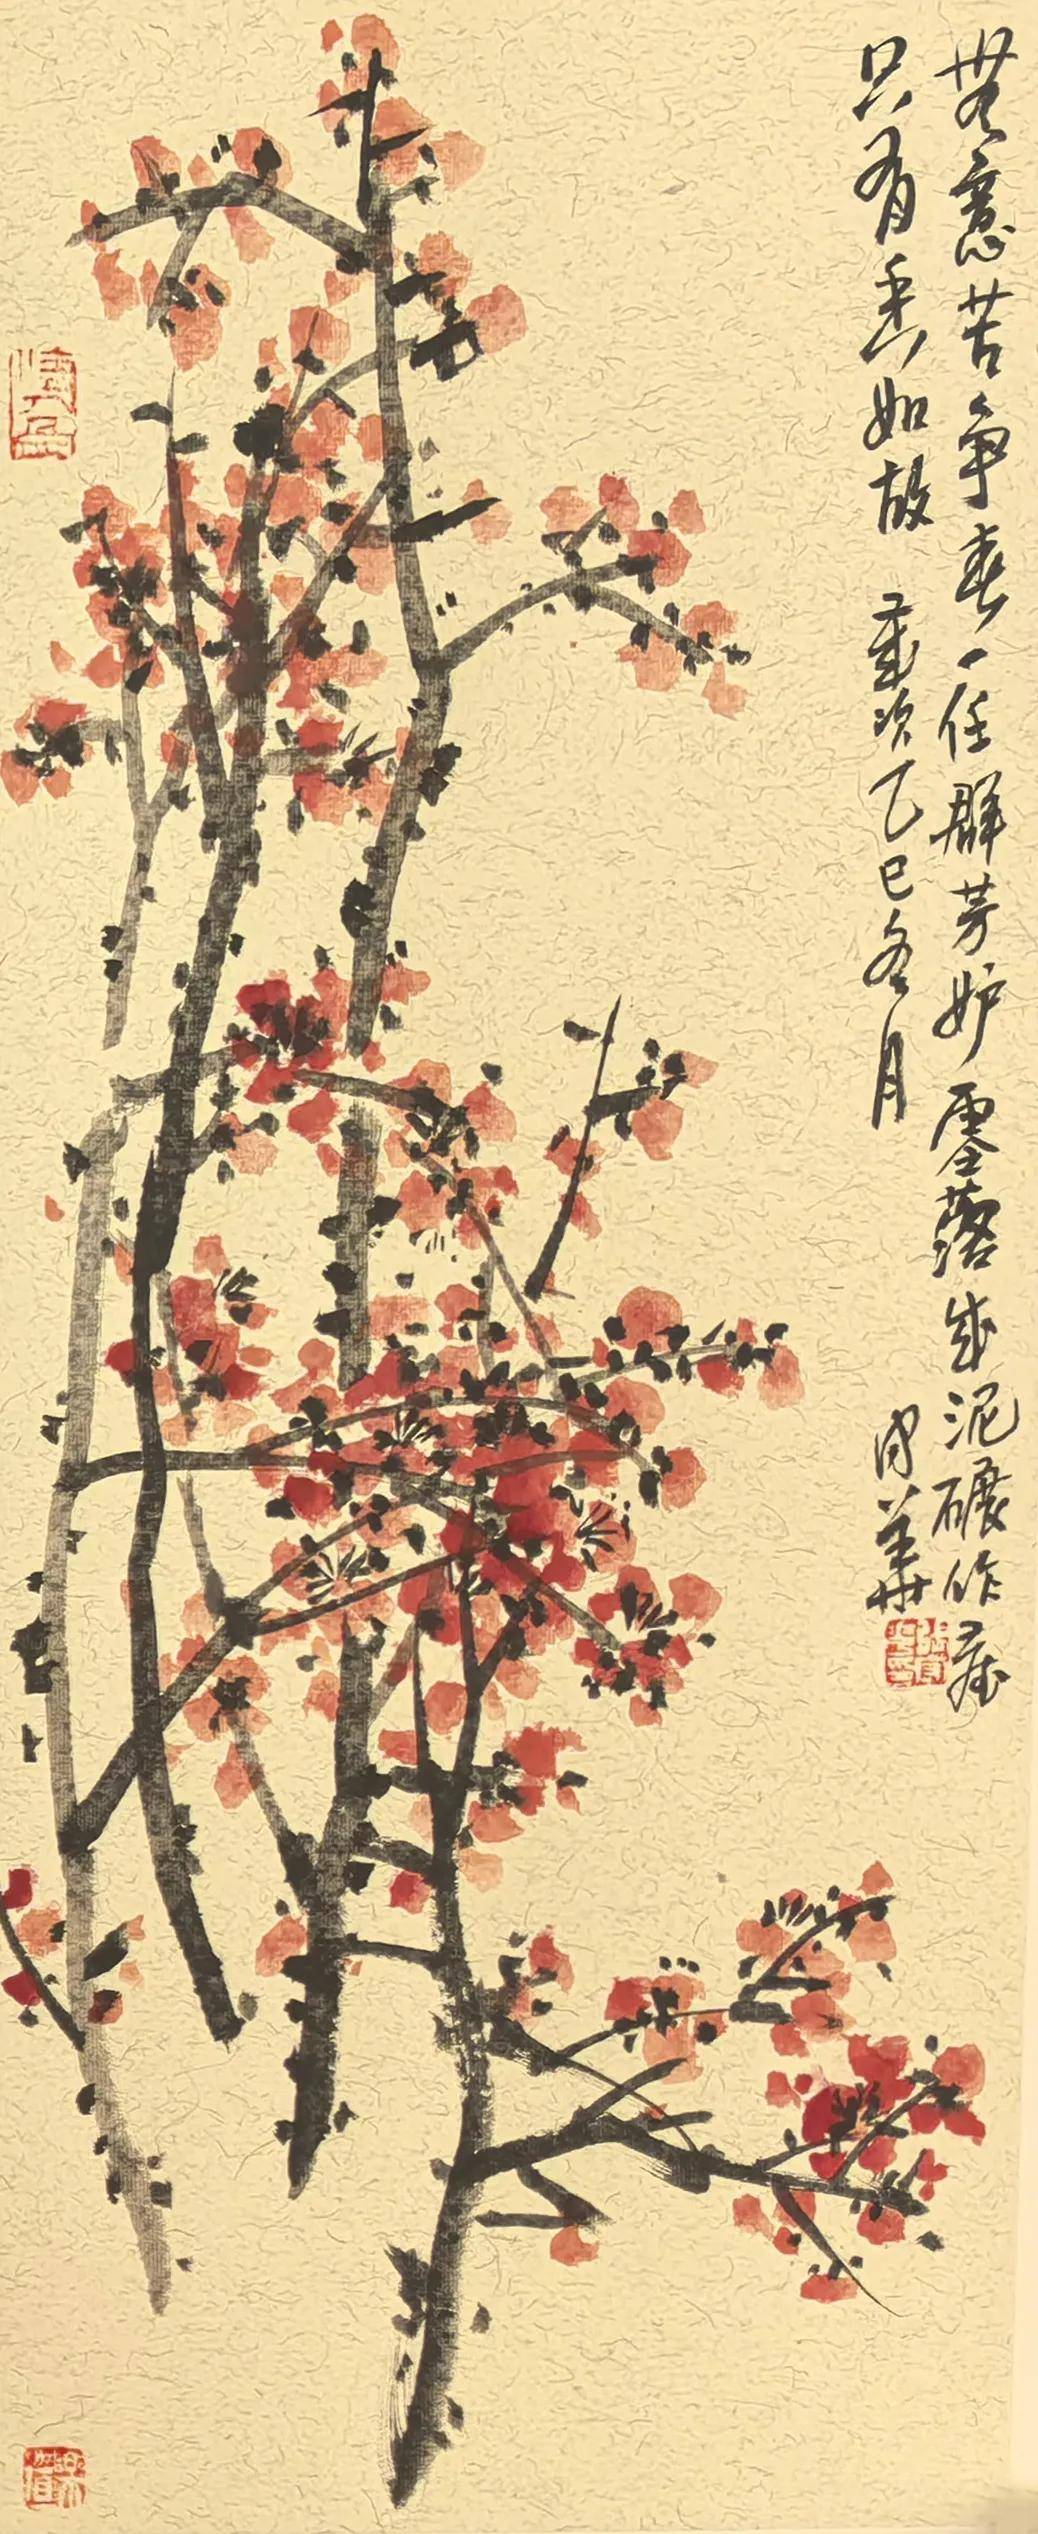 無意苦争春一任群芳妒零落成泥碾作塵
只有香如故 歲次乙巳冬月